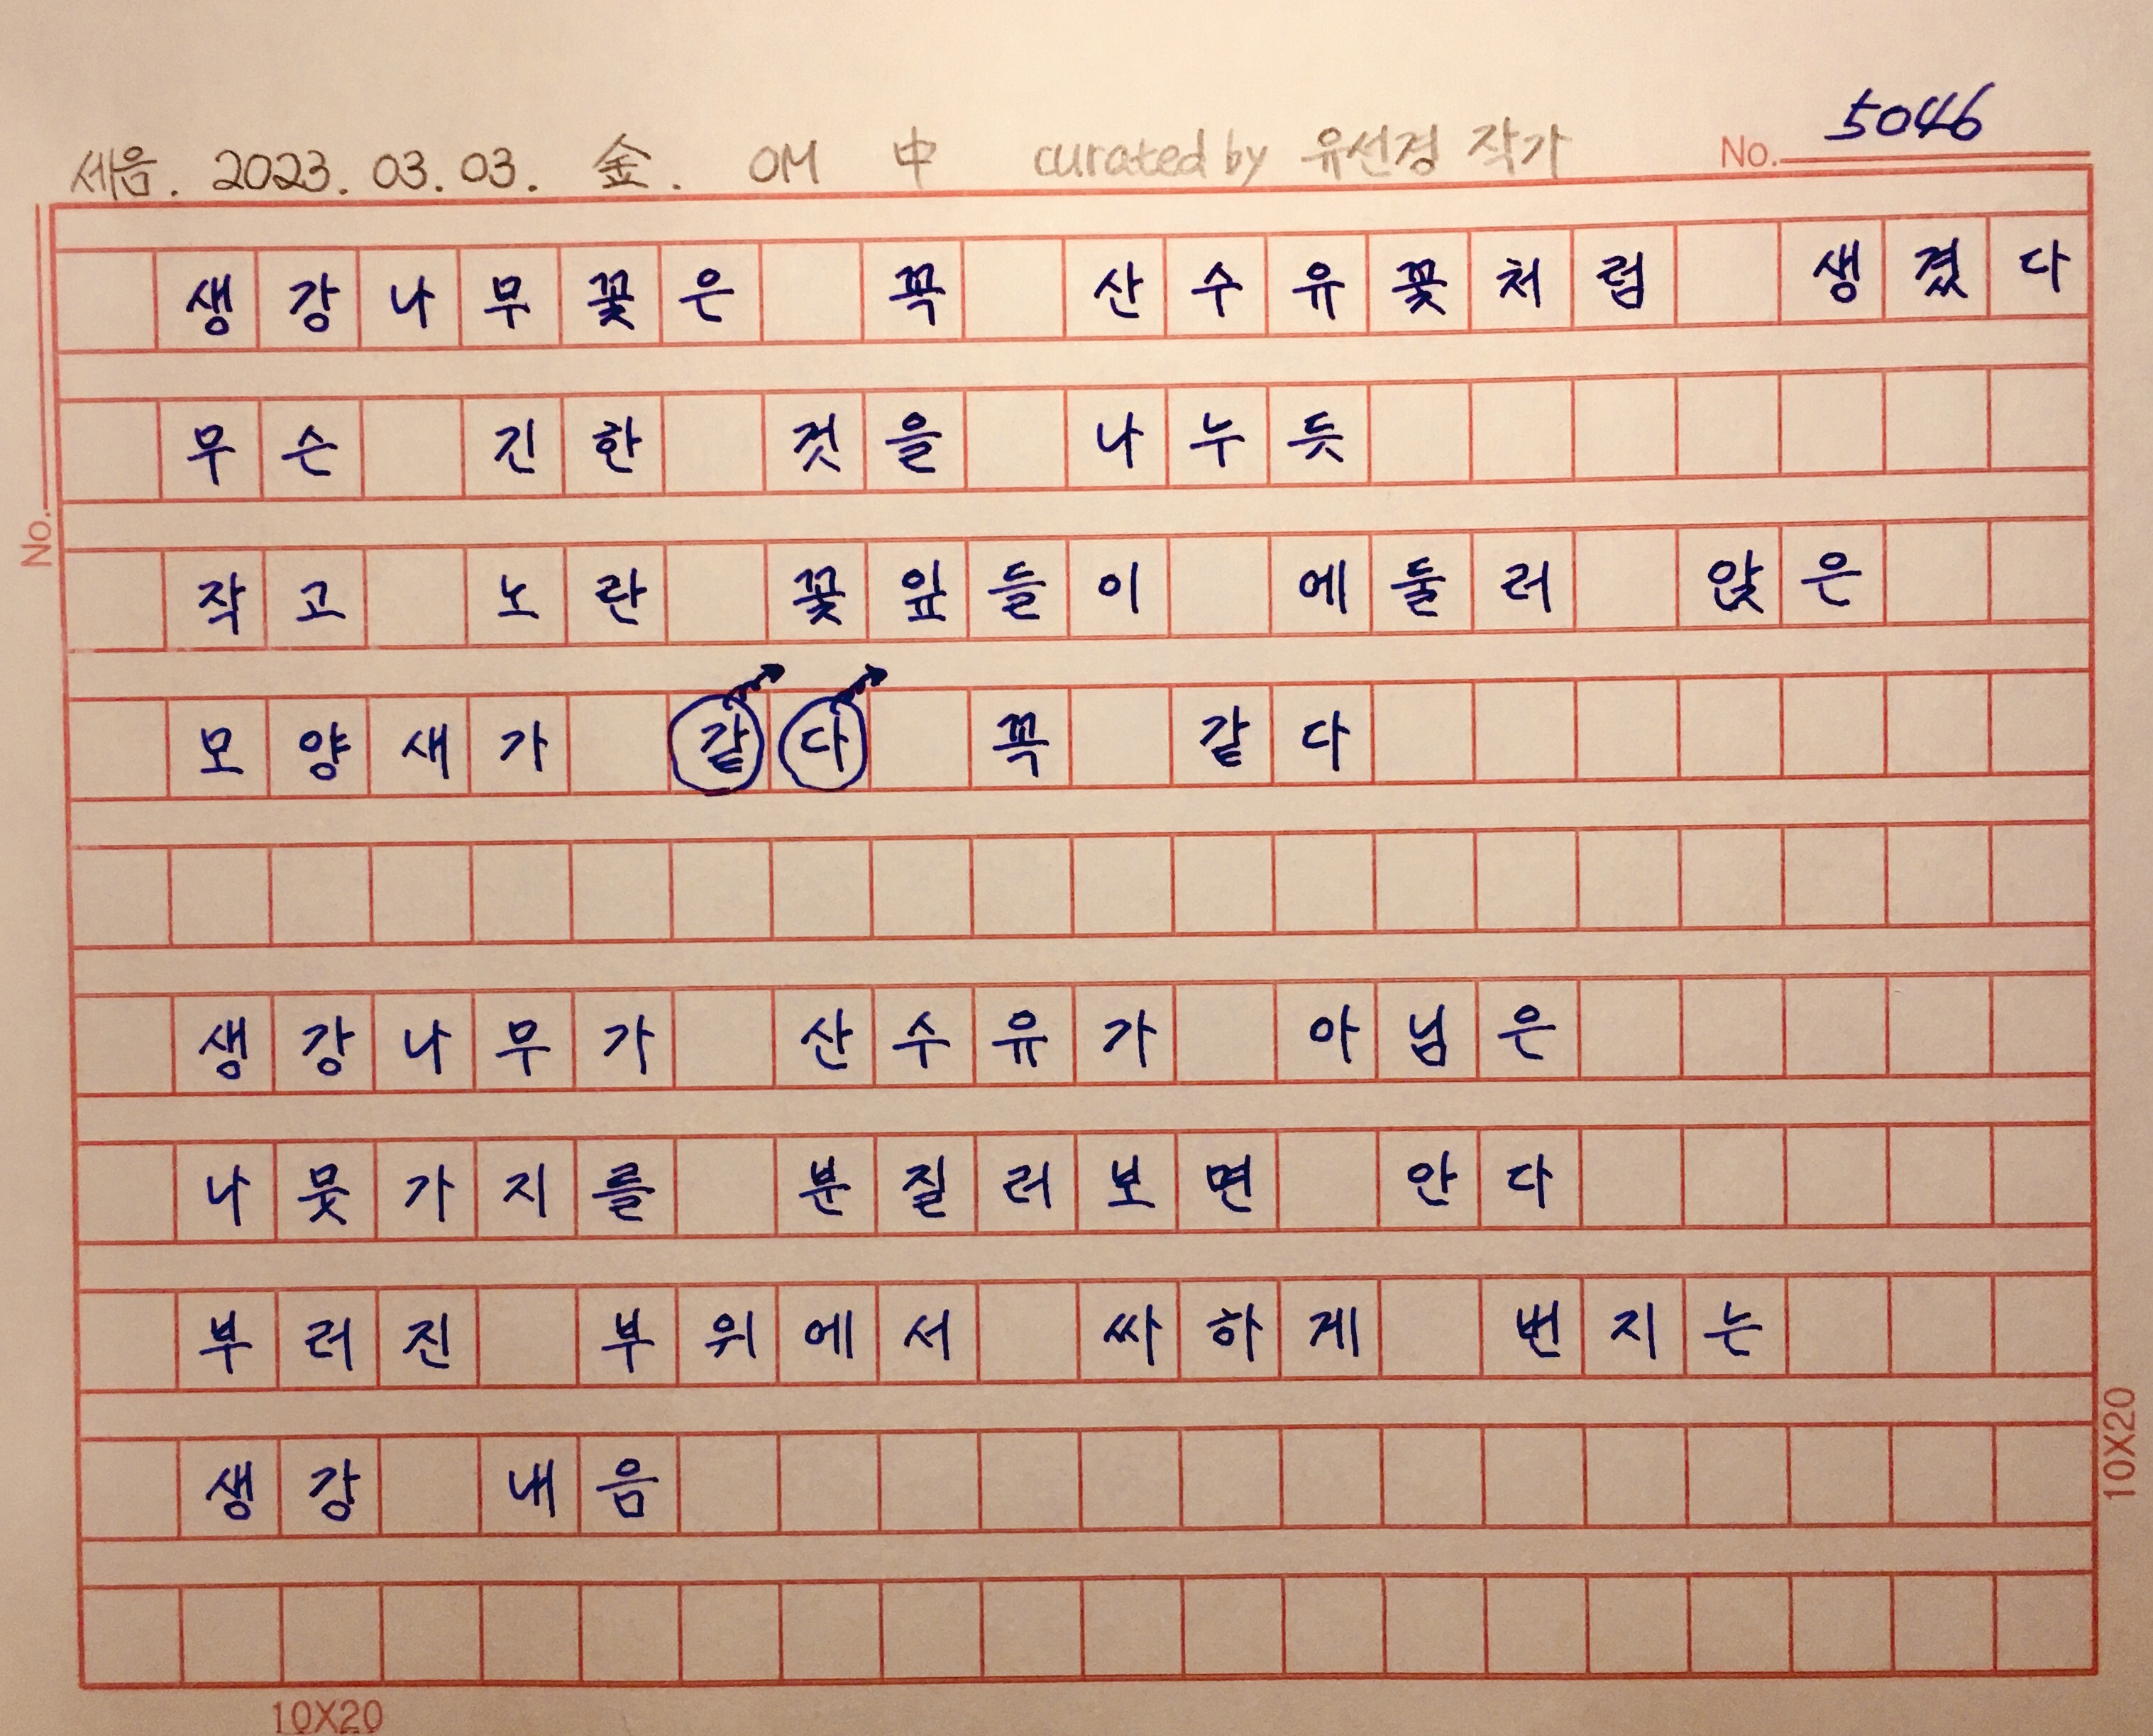 세음. 2023. 03. 03. 金. OM 中 curated by 유선경 작가 No. 5046
생강나무꽃은 꼭 산수유꽃처럼 생겼다
무슨 긴한 것을 나누듯
No.
작고 노란 꽃잎들이 에둘러 앉은
모양새가 같다 꼭 같다
생강나무가 산수유가 아님은
나뭇가지를 분질러보면 안다
부러진 부위에서 싸하게 번지는
생강 내음
10X20
10X20